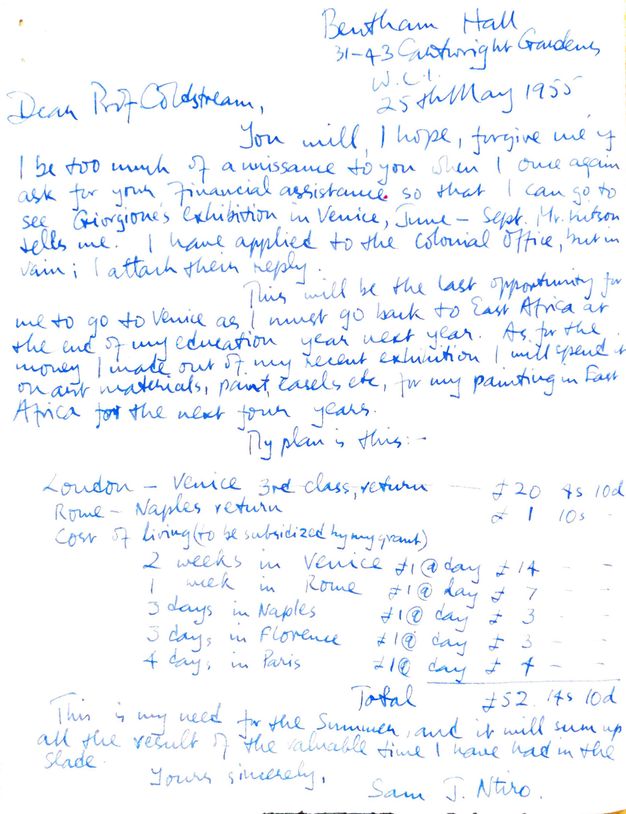 Bentham Hall
31-43 Cartwright Gardens
W.C.1.
25th May 1955
Dear Prof Coldstream,
You will, I hope, forgive me if
I be too much of a nuissance to you when I once again
ask for your financial assistance so that I can go to
see Giorgione's exhibition in Venice, June - Sept. Mr.
tells me. I have applied to the Colonial Office, but in
vain; I attach their reply.
This will be the last opportunity for
me to go to Venice as I must go back to East Africa at
the end of my education year next year. As for the
money I made out of my recent exhibition I will spend it
on art materials, paint, easels etc, for my painting in East
Africa for the next four years.
My plan is this:-
London - Venice 3rd class, return £20 4s 10d
Rome - Naples return £1 10s -
Cost of living (to be subsidized by my grant)
2 weeks in Venice £1 @ day £14 - -
1 week in Rome £1 @ day £7 - -
3 days in Naples £1 @ day £3 - -
3 days in Florence £1 @ day £3 - -
4 days in Paris £1 @ day £4 - -
Total £52. 14s 10d
This is my need for the Summer, and it will sum up
all the result of the valuable time I have had in the
Slade.
Yours sincerely,
Sam J. Ntiro.